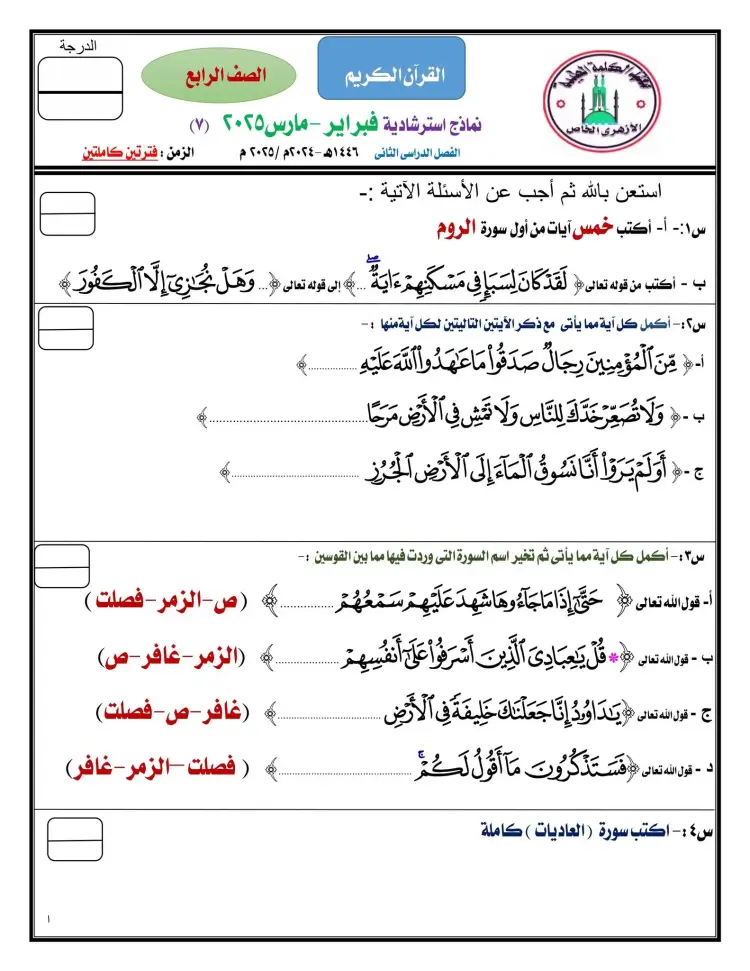 الدرجة
القرآن الكريم
الصف الرابع
الأزهرى الخاص
نماذج استرشادية فبراير -مارس٢٠٢٥ (٧)
الفصل الدراسى الثانى ١٤٤٦هـ-٢٠٢٤م /٢٠٢٥ م
الزمن : فترتين كاملتين
استعن بالله ثم أجب عن الأسئلة الآتية :-
س١:- أ- أكتب خمس آيات من أول سورة الروم
ب - أكتب من قوله تعالى﴿ لَقَدْ كَانَ لِسَبَإٍ فِى مَسْكَنِهِمْ ءَايَةٌۖ ...﴾ إلى قوله تعالى ﴿... وَهَلْ نُجَٰزِىٓ إِلَّا ٱلْكَفُورَ ﴾
س٢:- أكمل كل آية مما يأتى مع ذكر الآيتين التاليتين لكل آية منها :-
أ-﴿ مِّنَ ٱلْمُؤْمِنِينَ رِجَالٌ صَدَقُوا۟ مَا عَٰهَدُوا۟ ٱللَّهَ عَلَيْهِ ...............﴾
ب -﴿ وَلَا تُصَعِّرْ خَدَّكَ لِلنَّاسِ وَلَا تَمْشِ فِى ٱلْأَرْضِ مَرَحًا ...............﴾
ج -﴿ أَوَلَمْ يَرَوْا۟ أَنَّا نَسُوقُ ٱلْمَآءَ إِلَى ٱلْأَرْضِ ٱلْجُرُزِ ...............﴾
س٣:- أكمل كل آية مما يأتى ثم تخير اسم السورة التى وردت فيها مما بين القوسين :-
أ- قول الله تعالى ﴿ حَتَّىٰٓ إِذَا مَا جَآءُوهَا شَهِدَ عَلَيْهِمْ سَمْعُهُمْ ...............﴾ (ص-الزمر-فصلت )
ب - قول الله تعالى ﴿* قُلْ يَٰعِبَادِىَ ٱلَّذِينَ أَسْرَفُوا۟ عَلَىٰٓ أَنفُسِهِمْ ...............﴾ (الزمر-غافر-ص)
ج - قول الله تعالى ﴿يَٰدَاوُۥدُ إِنَّا جَعَلْنَٰكَ خَلِيفَةً فِى ٱلْأَرْضِ ...............﴾ (غافر-ص-فصلت)
د - قول الله تعالى ﴿فَسَتَذْكُرُونَ مَآ أَقُولُ لَكُمْۚ ...............﴾ ( فصلت -الزمر-غافر)
س٤:- اكتب سورة ( العاديات ) كاملة
١